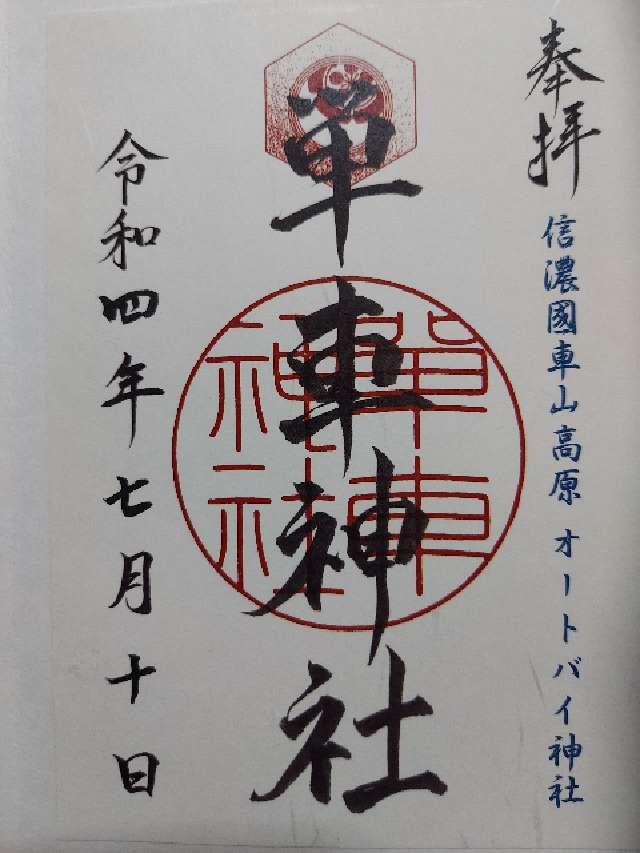 奉拝
信濃國車山高原 オートバイ神社
単車神社
單車神社
令和四年七月十日